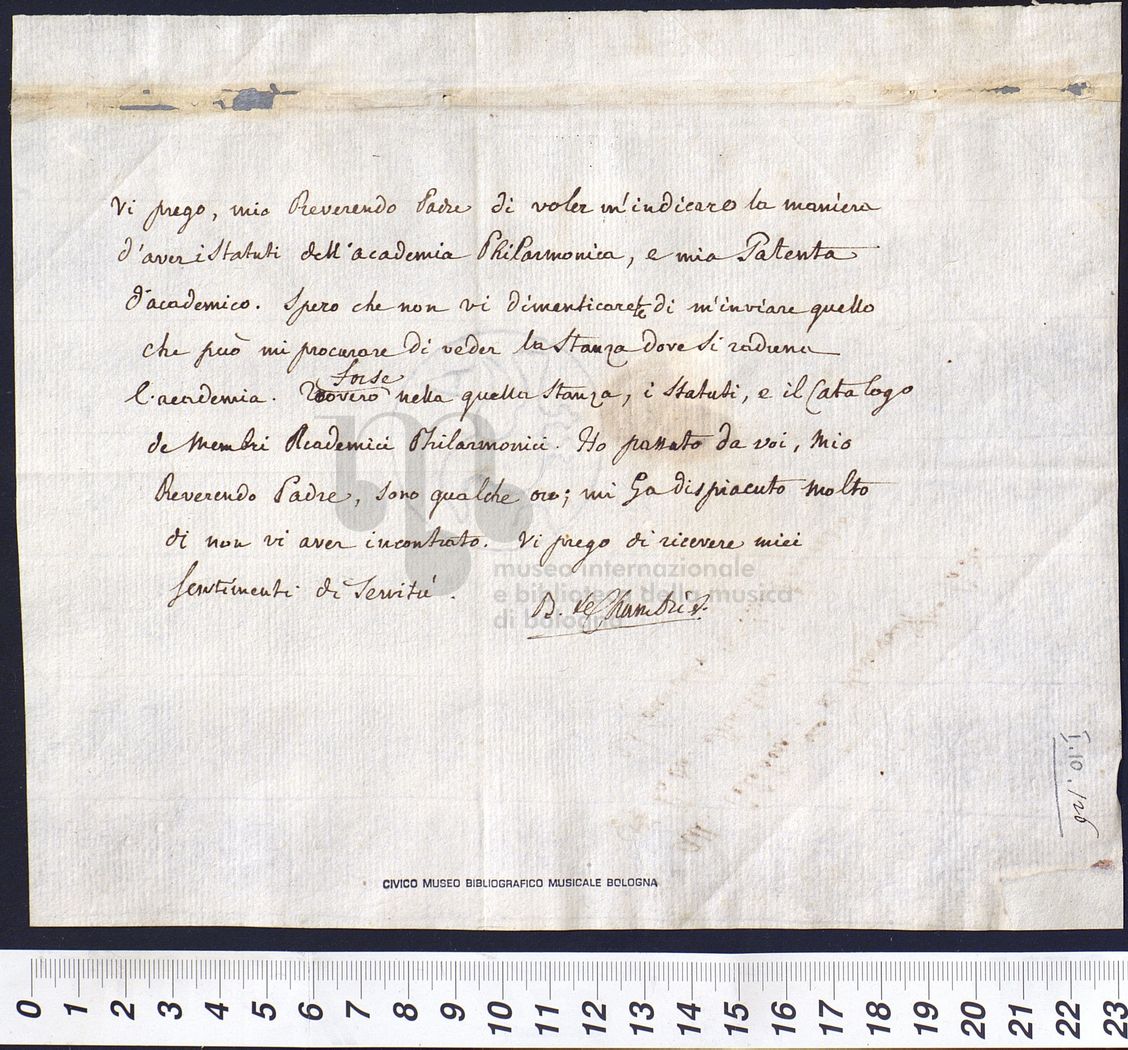 Vi prego, mio Reverendo Padre di voler m'indicare la maniera
d'aver i Statuti dell'academia Philarmonica, e mia Patenta
d'academico. Spero che non vi dimenticarete di m'inviare quello
che può mi procurare di veder la Stanza dove si raduna
l'academia. forse
nella quella Stanza, i Statuti, e il Catalogo
de Membri Academici Philarmonici. Ho passato da voi, Mio
Reverendo Padre, sono qualche ore; mi ha dispiacuto molto
di non vi aver incontrato. Vi prego di ricevere miei
sentimenti di Servitù.
B. de
museo internazionale
e biblioteca della musica
di bologna
I.10.126
CIVICO MUSEO BIBLIOGRAFICO MUSICALE BOLOGNA
0 1 2 3 4 5 6 7 8 9 10 11 12 13 14 15 16 17 18 19 20 21 22 23